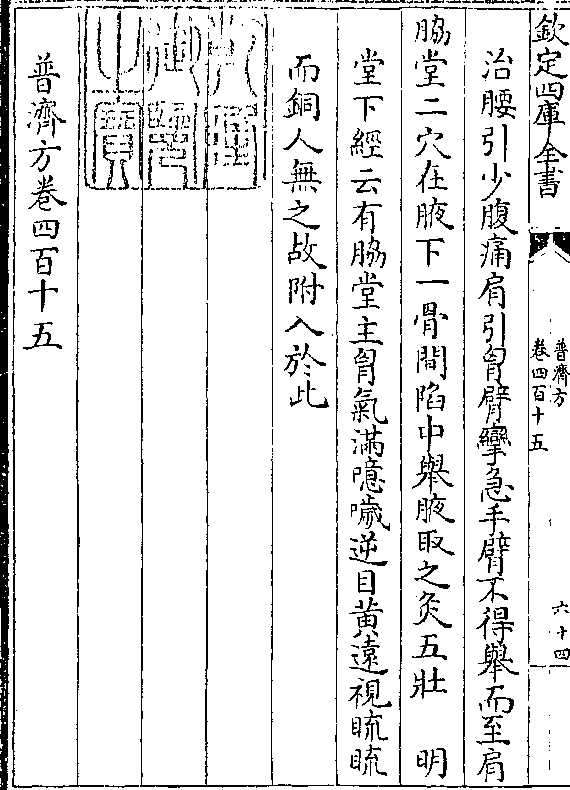 欽定四庫全書
普濟方
卷四百十五
六十四
治腰引少腹痛肩引胷臂攣急手臂不得舉而至肩
脇堂二穴在腋下一骨間陷中舉腋取之灸五壯　明
堂下經云有脇堂主胷氣滿噫噦逆目黄遠視䀮䀮
而銅人無之故附入於此
普濟方卷四百十五